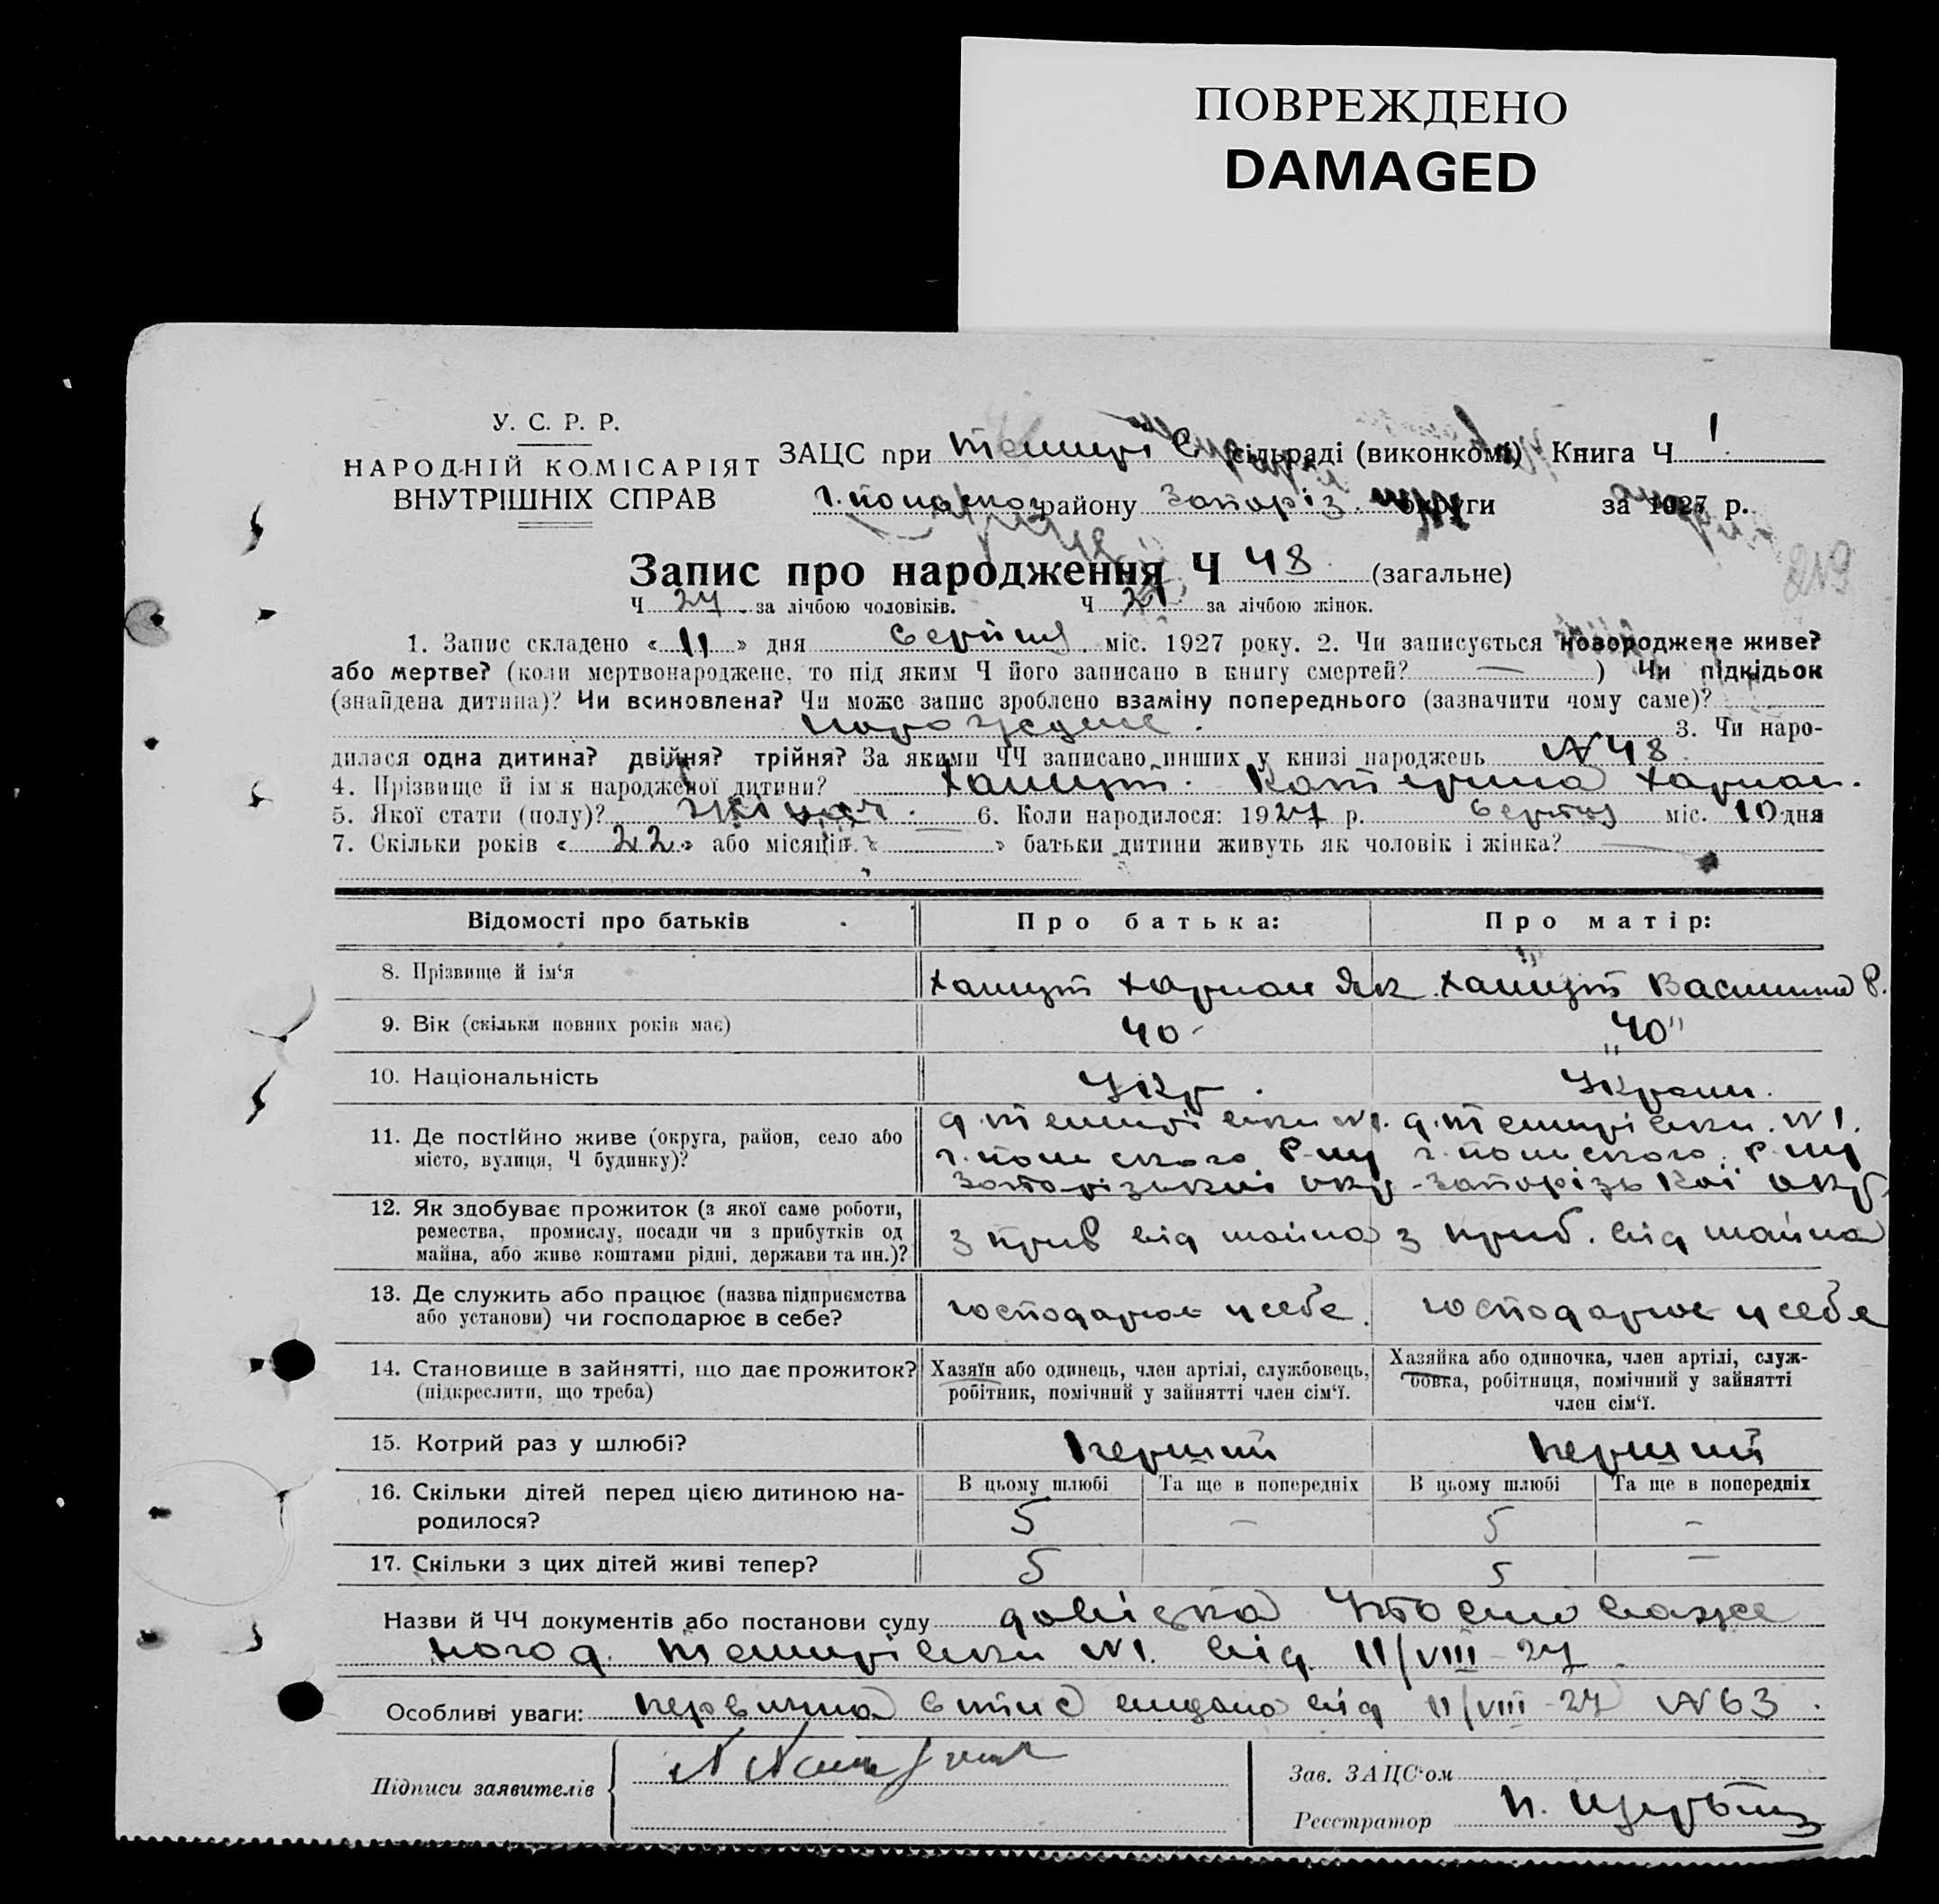 ПОВРЕЖДЕНО
DAMAGED
У. С. Р. Р.
НАРОДНІЙ КОМІСАРІЯТ
ВНУТРІШНІХ СПРАВ
ЗАЦС при сільраді (виконкомі) Книга Ч 1
району Запоріз. округи за 1927 р.
219
Запис про народження Ч 48 (загальне)
Ч 27 за лічбою чоловіків. Ч 21 за лічбою жінок.
1. Запис складено « 11 » дня серпня міс. 1927 року. 2. Чи записується новороджене живе?
або мертве? (коли мертвонароджене, то під яким Ч його записано в книгу смертей? — ) Чи підкідьок
(знайдена дитина)? Чи всиновлена? Чи може запис зроблено взаміну попереднього (зазначити чому саме)?
3. Чи наро-
дилася одна дитина? двійня? трійня? За якими ЧЧ записано инших у книзі народжень N 48
4. Прізвище й ім'я народженої дитини? Катерина Харлам.
5. Якої стати (полу)? жіноч. 6. Коли народилося: 1927 р. серпня міс. 10 дня
7. Скільки років « 22 » або місяців « » батьки дитини живуть як чоловік і жінка?
Відомості про батьків Про батька: Про матір:
8. Прізвище й ім'я Харлам Як Василина Р.
9. Вік (скільки повних років має) 40 - „40"
10. Національність Укр. Україн.
11. Де постійно живе (округа, район, село або
місто, вулиця, Ч будинку)? N1. N1.
Запорізької окр. Запорізької окр.
12. Як здобуває прожиток (з якої саме роботи,
ремества, промислу, посади чи з прибутків од
майна, або живе коштами рідні, держави та ин.)? з приб від майна з приб. від майна
13. Де служить або працює (назва підприємства
або установи) чи господарює в себе? господарює у себе. господарює у себе
14. Становище в зайнятті, що дає прожиток?
(підкреслити, що треба)
Хазяїн або одинець, член артілі, службовець,
робітник, помічний у зайнятті член сім'ї.
Хазяйка або одиночка, член артілі, служ-
бовка, робітниця, помічний у зайнятті
член сім'ї.
15. Котрий раз у шлюбі? перший перший
В цьому шлюбі Та ще в попередніх В цьому шлюбі Та ще в попередніх
16. Скільки дітей перед цією дитиною на-
родилося? 5 – 5 –
17. Скільки з цих дітей живі тепер? 5 5 –
Назви й ЧЧ документів або постанови суду довідка
N1. від 11/VIII - 27.
Особливі уваги: первична видана від 11/VIII - 27 N 63.
Підписи заявителів
Зав. ЗАЦС'ом
Реєстратор